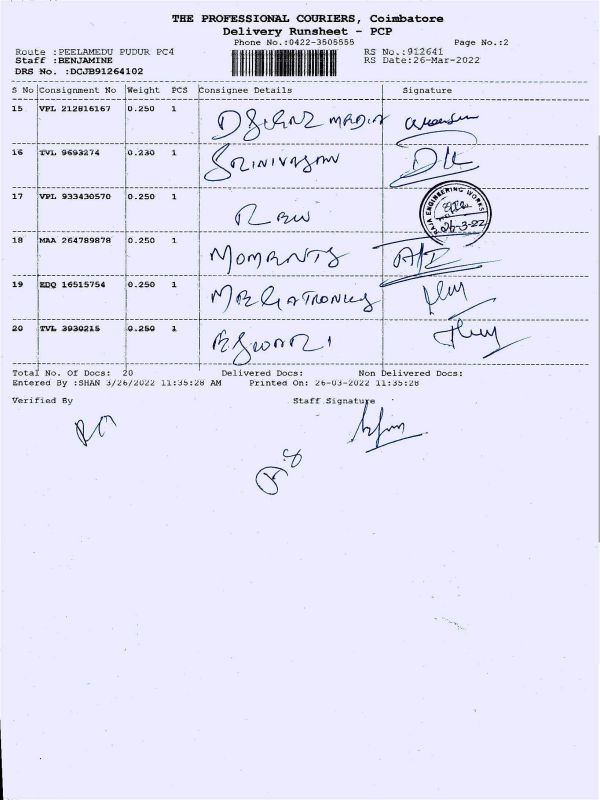 THE PROFESSIONAL COURIERS, Coimbatore
Delivery Runsheet - PCP
Phone No.:0422-3505555 Page No.:2
Route :PEELAMEDU PUDUR PC4 RS No.:912641
Staff :BENJAMINE RS Date:26-Mar-2022
DRS No. :DCJB91264102
S No Consignment No Weight PCS Consignee Details Signature
15 VPL 212816167 0.250 1 MEDIA
16 TVL 9693274 0.230 1 SRINIVASAN
17 VPL 933430570 0.250 1
RAJA ENGINEERING WORKS
26-3-22
18 MAA 264789878 0.250 1 MOMENTS
19 EDQ 16515754 0.250 1 MECHATRONICS
20 TVL 3930215 0.250 1 ESWARI
Total No. Of Docs: 20 Delivered Docs: Non Delivered Docs:
Entered By :SHAN 3/26/2022 11:35:28 AM Printed On: 26-03-2022 11:35:28
Verified By Staff Signature